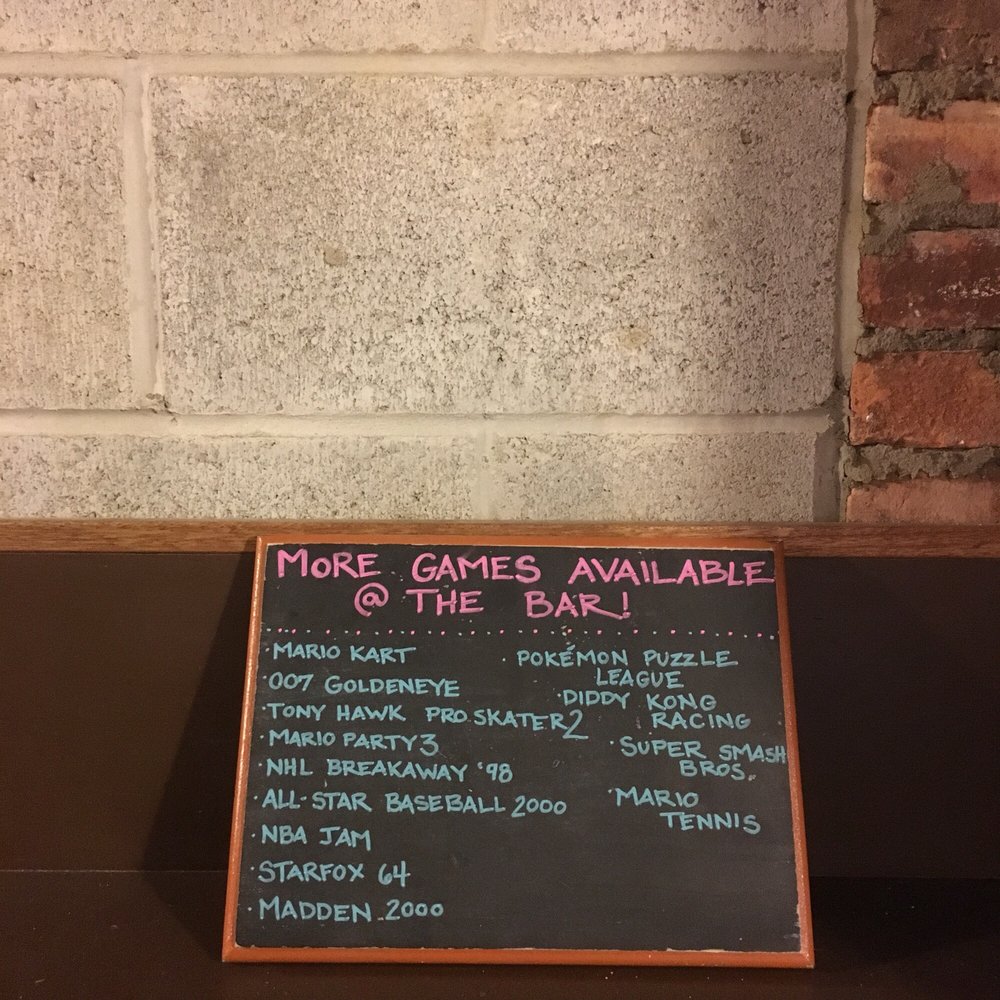 MORE GAMES AVAILABLE
@ THE BAR!
· MARIO KART
· 007 GOLDENEYE
· TONY HAWK PRO SKATER 2
· MARIO PARTY 3
· NHL BREAKAWAY '98
· ALL-STAR BASEBALL 2000
· NBA JAM
· STARFOX 64
· MADDEN 2000
· POKÉMON PUZZLE
LEAGUE
· DIDDY KONG
RACING
· SUPER SMASH
BROS.
· MARIO
TENNIS